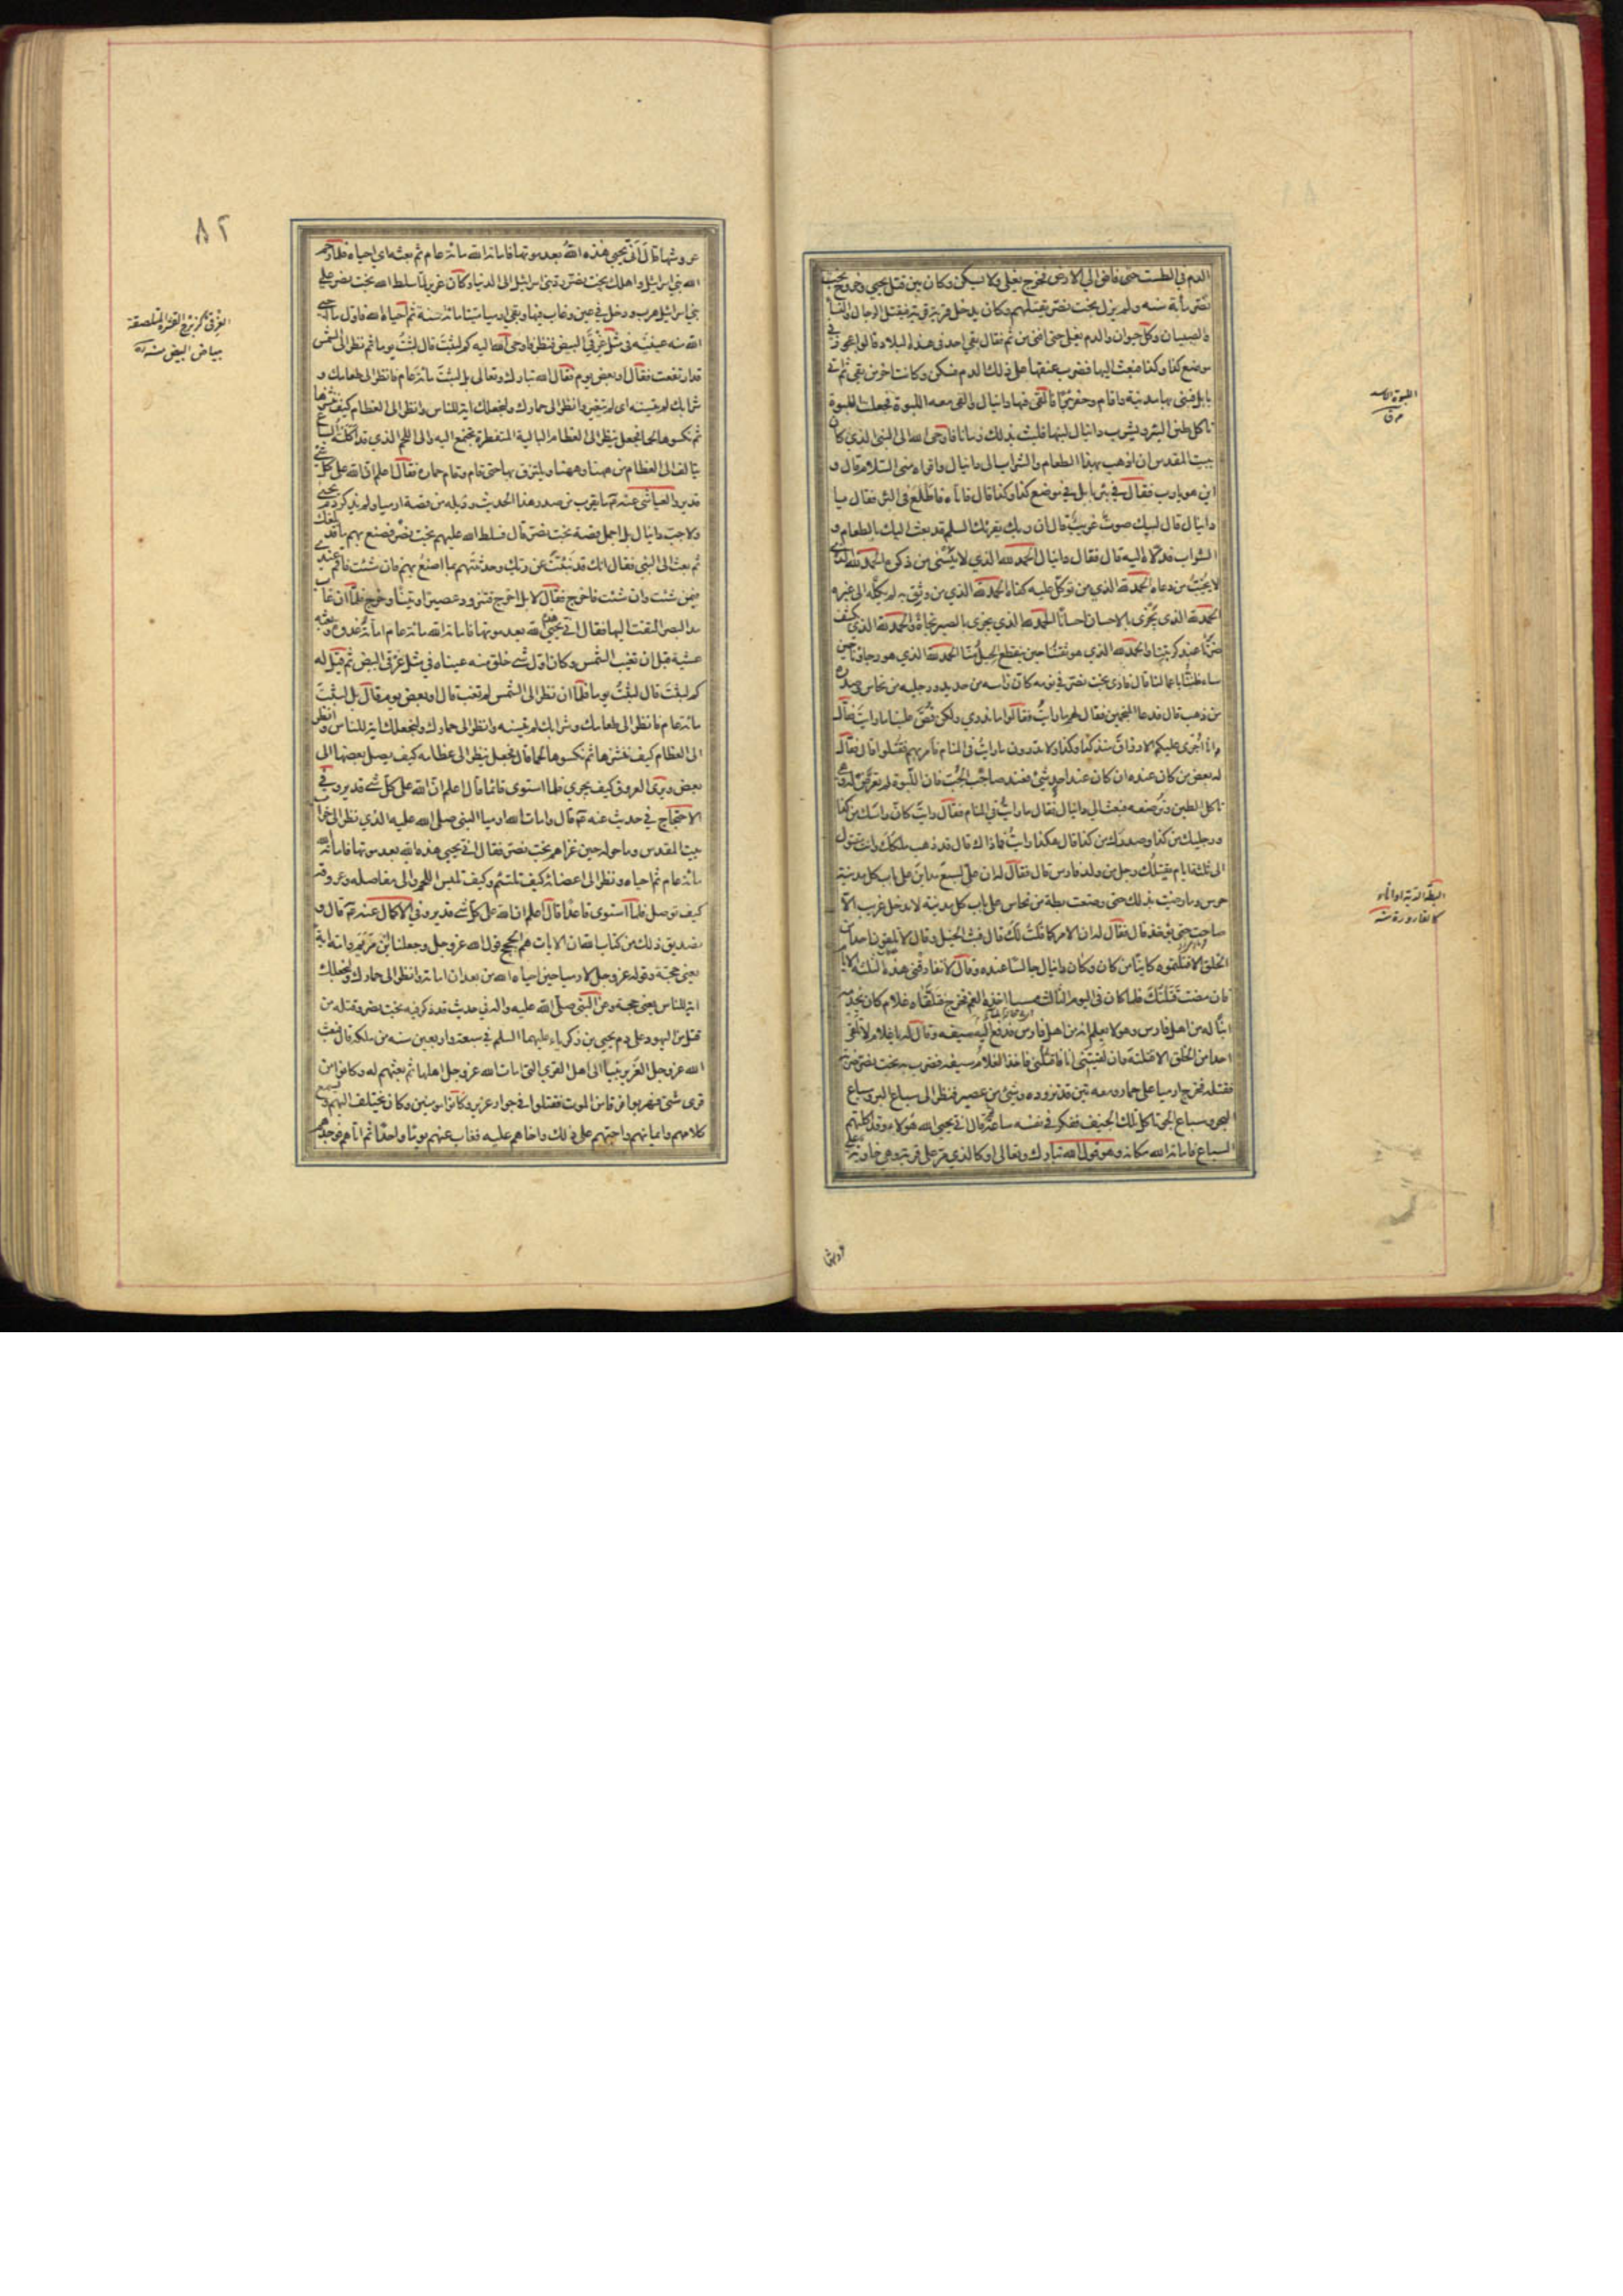 الدم في الطست حتى فاض الى الارض فخرج يغلى ولا يسكن وكان بين قتل يحيى وخروج بخت
نصر مأة سنه ولم يزل بخت نصر يقتلهم وكان يدخل قرية قرية فيقتل الرجال والنساء
والصبيان وكل حيوان والدم يغلى حتى افنى من ثم فقال بقى احد فى هذه البلاد قالوا عجوز فى
موضع كذا وكذا فبعث اليها فضرب عنقها على ذلك الدم فسكن وكانت اخر من بقى ثم اتى
بابل فبنى بها مدينة واقام وحفر بئرا فالقى فيها دانيال والقى معه اللبوة فجعلت اللبوة
تاكل طين البئر ويشرب دانيال لبنها فلبث بذلك زمانا فاوحى الله الى النبى الذي كان
ببيت المقدس ان اذهب بهذا الطعام والشراب الى دانيال واقراه منى السلام قال و
اين هو يارب فقال فى بئر بابل فى موضع كذا وكذا قال فاتاه فاطلع فى البئر فقال يا
دانيال قال لبيك صوت غريب قال ان ربك يقرئك السلم قد بعث اليك بالطعام و
الشراب فدلاه اليه قال فقال دانيال الحمد لله الذي لا ينسى من ذكره الحمد لله الذي
لا يخيب من دعاه الحمد لله الذي من توكل عليه كفاه الحمد لله الذي من وثق به لم يكله الى غيره
الحمد لله الذى يجزى بالاحسان احسانا الحمد لله الذي يجزى بالصبر نجاة والحمد لله الذي يكشف
ضرنا عند كربتنا والحمد لله الذي هو ثقتنا حين ينقطع الحيل منا الحمد لله الذي هو رجاؤنا حين
ساء ظننا باعمالنا قال فاري بخت نصر فى نومه كان راسه من حديد ورجليه من نحاس وصدره
من ذهب قال فدعا المنجمين فقال لهم ما رايت فقالوا ما ندري ولكن قص علينا ما رايت فقال
وانا اجرى عليكم الارزاق منذ كذا وكذا ولا تدرون ما رايت فى المنام فامر بهم فقتلوا قال فقال
له بعض من كان عنده ان كان عند احد شئ فعند صاحب الجب فان اللبوة لم تعرض له وهى
تاكل الطين وترضعه فبعث الى دانيال فقال ما رايت فى المنام فقال رايت كان راسك من كذا
ورجليك من كذا وصدرك من كذا قال هكذا رايت فما ذاك قال قد ذهب ملكك وانت مقتول
الى ثلثة ايام يقتلك رجل من ولد فارس قال فقال له ان على لسبع مداين على باب كل مدينة
حرس وما رضيت بذلك حتى وضعت بطة من نحاس على باب كل مدينة لا يدخل غريب الا
صاحت حتى يؤخذ قال فقال له ان الامر كما قلت لك قال فبث الخيل وقال لا تلقون احدا من
الخلق الا قتلتموه كاينا من كان وكان دانيال جالسا عنده وقال لا تفارقنى هذه الثلثة الايام
فان مضت قتلتك فلما كان فى اليوم الثالث ممسيا اخذه الغم فخرج فتلقاه غلام كان يخدم
ابنا له من اهل فارس وهو لا يعلم انه من اهل فارس فدفع اليه سيفه وقال له يا غلام لا تلقى
احدا من الخلق الا قتلته وان لقيتنى انا فاقتلنى فاخذ الغلام سيفه فضرب به بخت نصر ضربة
فقتله فخرج ارميا على حماره ومعه تين قد تزوده وشئ من عصير فنظر الى سباع البر وسباع
البحر وسباع الجو تاكل تلك الجيف ففكر فى نفسه ساعة ثم قال انى يحيى الله هؤلاء وقد اكلتهم
السباع فاماته الله مكانه وهو قول الله تبارك وتعالى او كالذي مر على قرية وهى خاوية على
عروشها
اللبوة الاسد
البطة الدبة او اناء
كالقارورة
٨٢
عروشها قال انى يحيى هذه الله بعد موتها فاماته الله مائة عام ثم بعثه اي احياه فلما رحم
الله بني اسرائيل واهلك بخت نصر رد بنى اسرائيل الى الدنيا وكان عزير لما سلط الله بخت نصر على
بنى اسرائيل هرب ودخل فى عين وغاب فيها وبقى ارميا ميتا مائة سنة ثم احياه الله فاول ما احيى
الله منه عينيه فى مثل غرقئ البيض فنظر فاوحى الله اليه كم لبثت قال لبثت يوما ثم نظر الى الشمس
قد ارتفعت فقال او بعض يوم فقال الله تبارك وتعالى بل لبثت مائة عام فانظر الى طعامك و
شرابك لم يتسنه اى لم يتغير وانظر الى حمارك ولنجعلك اية للناس وانظر الى العظام كيف ننشزها
ثم نكسوها لحما فجعل ينظر الى العظام البالية المتفطرة تجتمع اليه والى اللحم الذي قد اكلته السباع
يتالف الى العظام من ههنا وههنا ويلتزق بها حتى قام وقام حماره فقال اعلم ان الله على كل شئ
قدير والعياشى عنه ما يقرب من صدر هذا الحديث وذيله من قصة ارميا ولم يذكر دم يحيى
ولا جب دانيال بل اجمل قصة بخت نصر قال فسلط الله عليهم بخت نصر فصنع بهم ما قد بلغك
ثم بعث الى النبى فقال انك قد نبئت عن ربك وحدثتهم بما اصنع بهم فان شئت فاقم عندي
فيمن شئت وان شئت فاخرج فقال لا بل اخرج فتزود عصيرا وتينا وخرج فلما ان غاب
مد البصر التفت اليها فقال انى يحيى هذه الله بعد موتها فاماته الله مائة عام اماته غدوة وبعثه
عشية قبل ان تغيب الشمس وكان اول شئ خلق منه عيناه فى مثل غرقئ البيض ثم قيل له
كم لبثت قال لبثت يوما فلما ان نظر الى الشمس لم تغب قال او بعض يوم قال بل لبثت
مائة عام فانظر الى طعامك وشرابك لم يتسنه وانظر الى حمارك ولنجعلك اية للناس وانظر
الى العظام كيف ننشزها ثم نكسوها لحما قال فجعل ينظر الى عظامه كيف يصل بعضها الى
بعض ويرى العروق كيف يجري فلما استوى قائما قال اعلم ان الله على كل شئ قدير وفي
الاحتجاج فى حديث عنه قال وامات الله ارميا النبى صلى الله عليه الذي نظر الى خراب
بيت المقدس وما حوله حين غزاهم بخت نصر فقال انى يحيى هذه الله بعد موتها فاماته الله
مائة عام ثم احياه ونظر الى اعضائه كيف تلتئم وكيف تلبس اللحم والى مفاصله وعروقه
كيف توصل فلما استوى قاعدا قال اعلم ان الله على كل شئ قدير وفى الاكمال عنه قال و
تصديق ذلك من كتاب الله ان الايات هم الحجج قول الله عز وجل وجعلنا ابن مريم وامه اية
يعنى حجة وقوله عز وجل لارميا حين احياه الله من بعد ان اماته وانظر الى حمارك ولنجعلك
اية للناس يعنى حجة وعن النبى صلى الله عليه واله فى حديث قد ذكر فيه بخت نصر وقتله من
قتل من اليهود على دم يحيى بن زكرياء عليهما السلم فى سبعة واربعين سنه من ملكه قال فبعث
الله عز وجل العزير نبيا الى اهل القرى التى امات الله عز وجل اهلها ثم بعثهم له وكانوا من
قرى شتى فهربوا فرقا من الموت فنزلوا فى جوار عزير وكانوا مومنين وكان يختلف اليهم ويسمع
كلامهم وايمانهم واحبهم على ذلك واخاهم عليه فغاب عنهم يوما واحدا ثم اتاهم فوجدهم
الغرقئ كزبرج القشرة الملتصقة
ببياض البيض